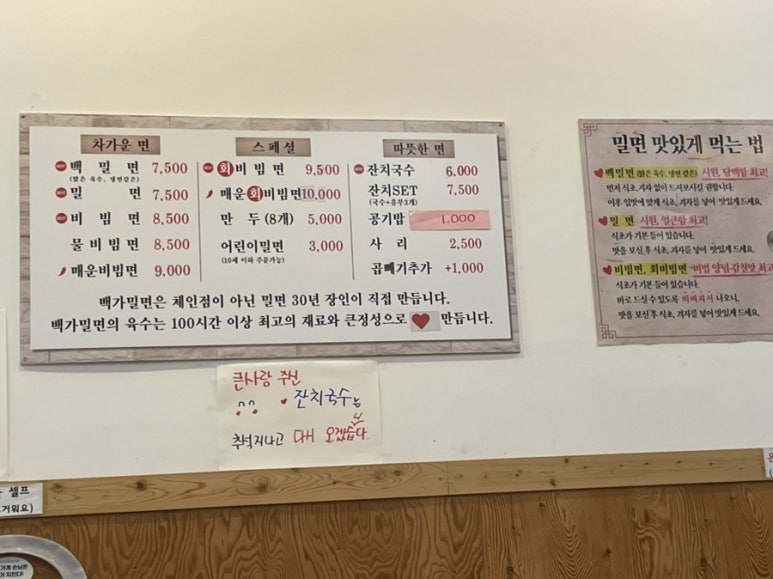 차가운 면
백 밀 면 7,500
(맑은 육수, 냉면같은)
밀 면 7,500
비 빔 면 8,500
물 비 빔 면 8,500
매운비빔면 9,000
스페셜
회비 빔 면 9,500
매운회비빔면 10,000
만 두 (8개) 5,000
어린이밀면 3,000
(10세 이하 주문가능)
따뜻한 면
잔치국수 6,000
잔치SET 7,500
(국수+유부3개)
공기밥 1,000
사 리 2,500
곱빼기추가 +1,000
백가밀면은 체인점이 아닌 밀면 30년 장인이 직접 만듭니다.
백가밀면의 육수는 100시간 이상 최고의 재료와 큰정성으로 ♥ 만듭니다.
큰사랑 주신
♥ 잔치국수는
추석지나고 다시 오겠습니다.
밀면 맛있게 먹는 법
♥백밀면(맑은 육수, 냉면같은) 시원, 담백함 최고!
먼저 식초, 겨자 없이 드셔보시길 권합니다.
이후 입맛에 맞게 식초, 겨자를 넣어 맛있게 드세요.
♥밀 면 시원, 얼큰함 최고!
식초가 기본 들어 있습니다.
맛을 보신 후 식초, 겨자를 넣어 맛있게 드세요.
♥비빔면, 회비빔면 비법 양념 감칠맛 최고
식초가 기본 들어 있습니다.
바로 드실 수 있도록 비벼져서 나오니,
맛을 보신 후 식초, 겨자를 넣어 맛있게 드세요.
셀프